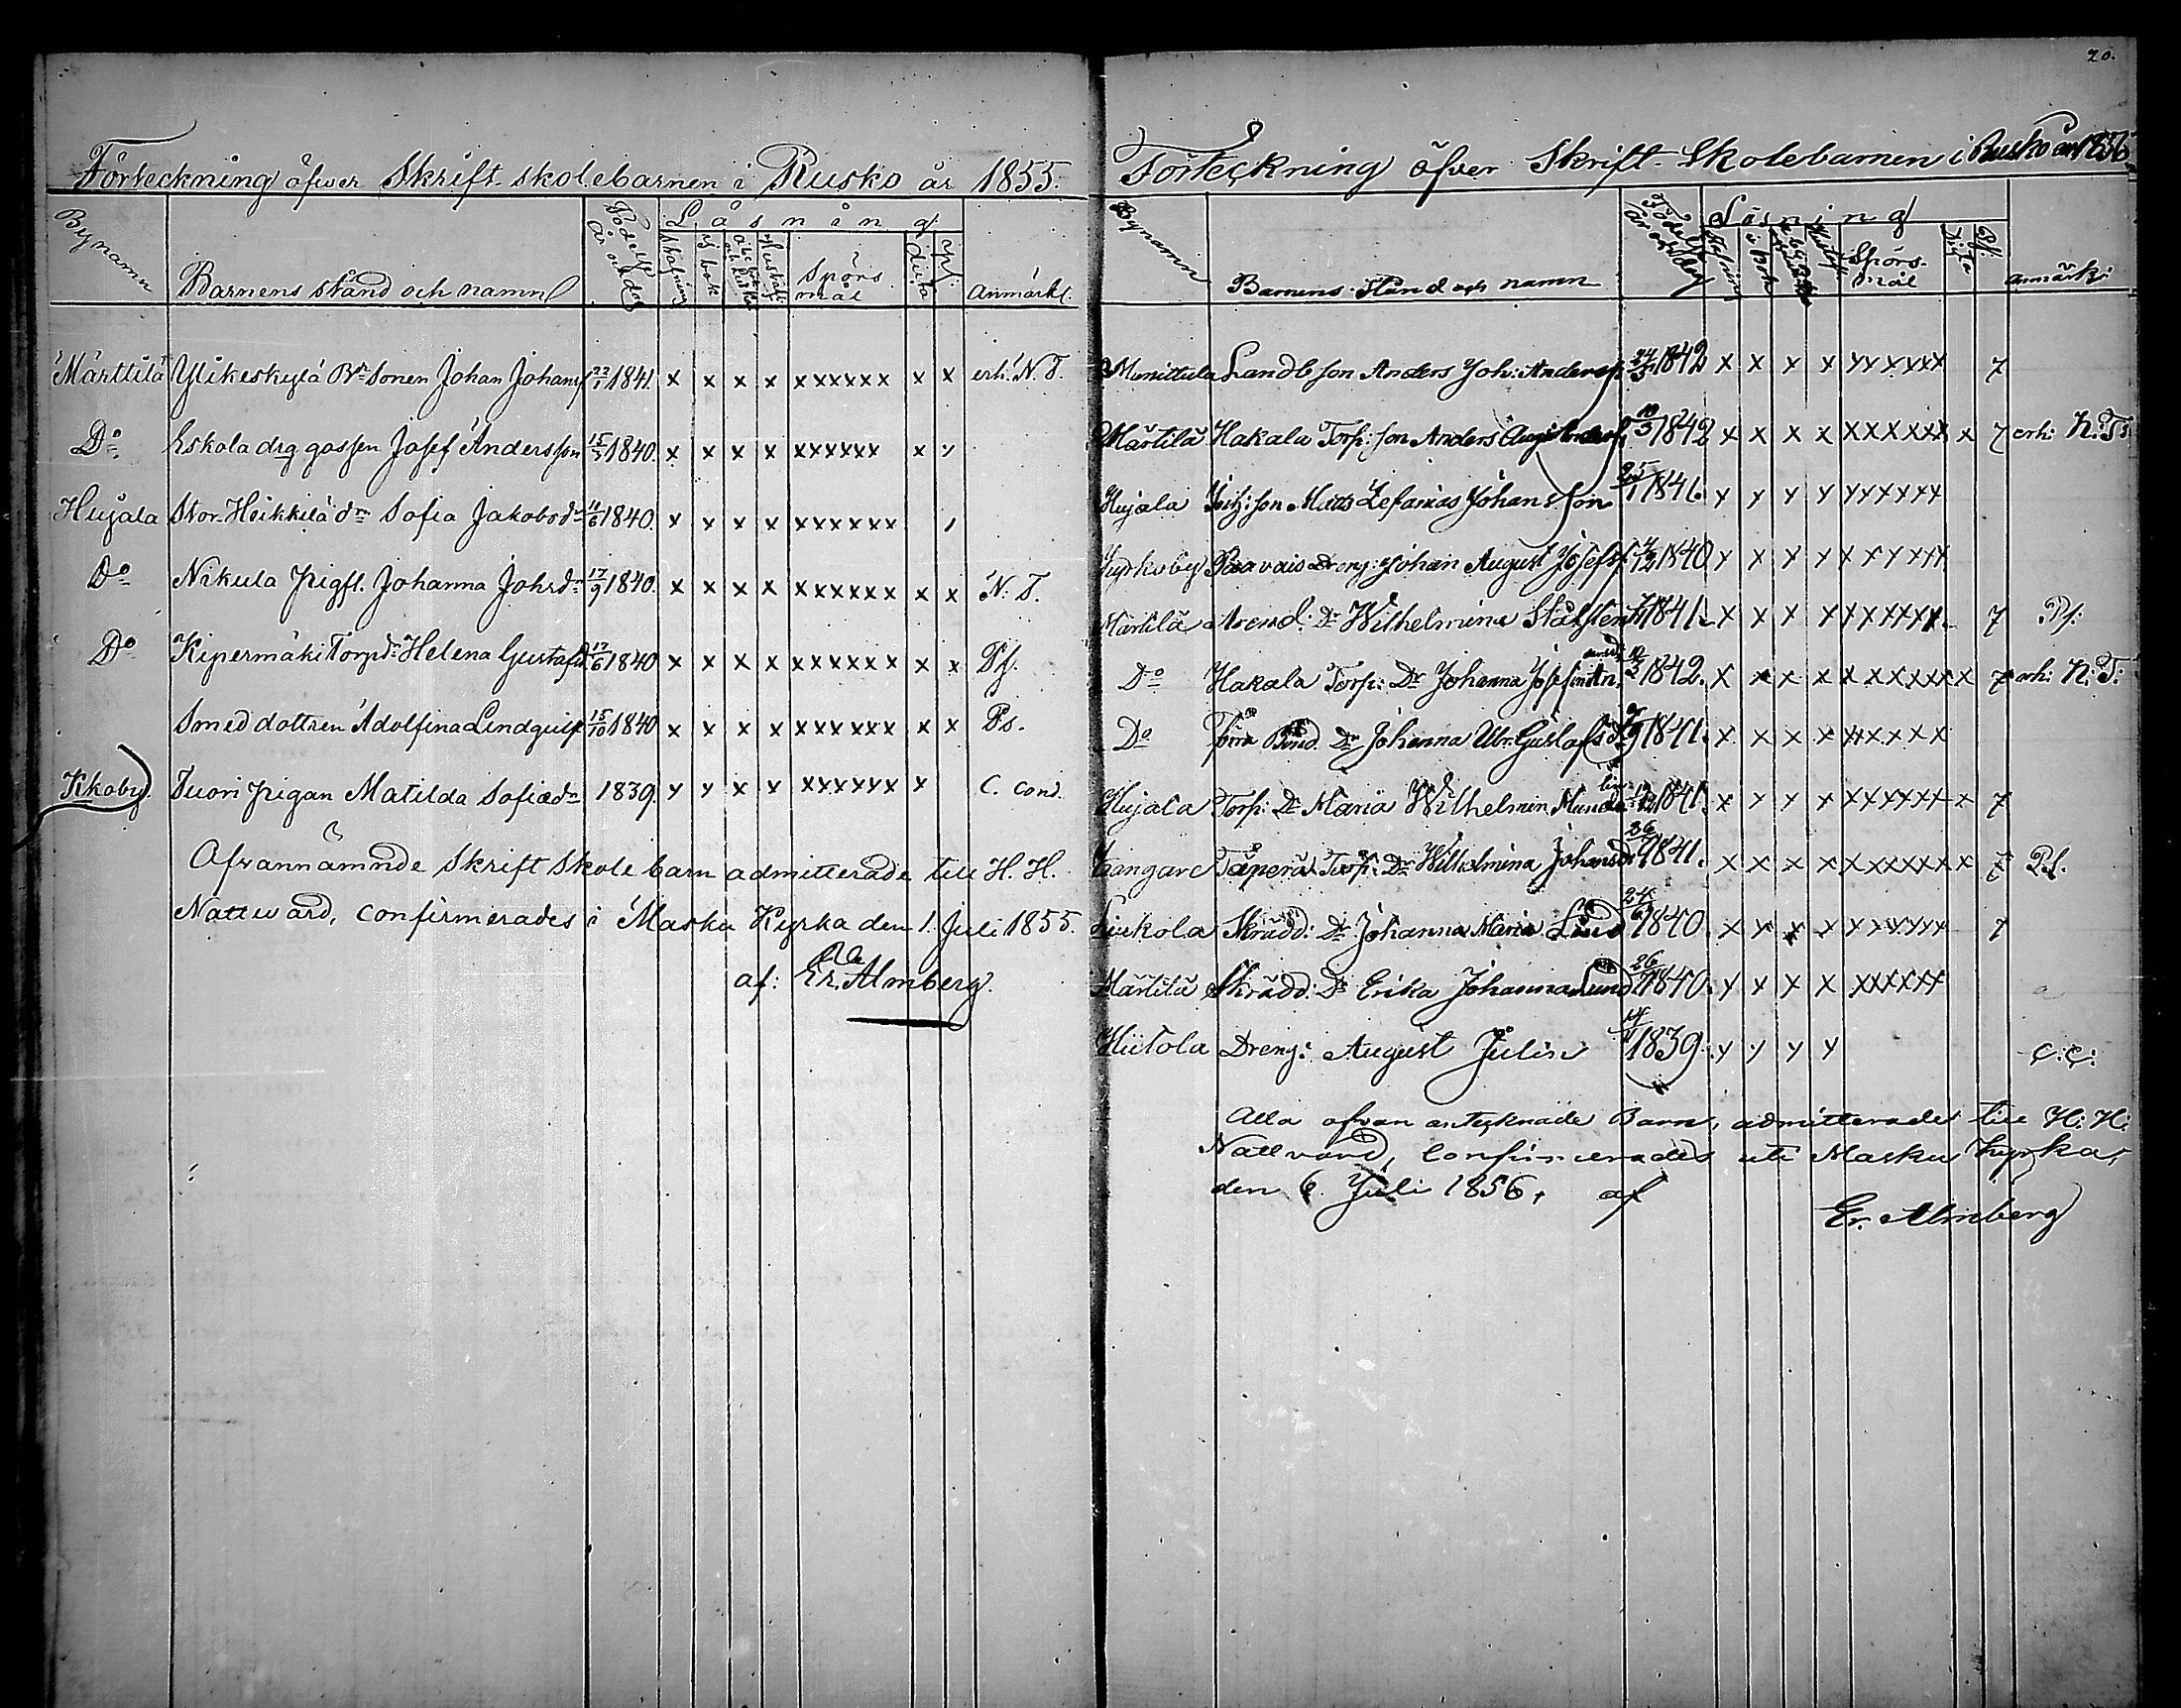 Förteckning öfwer Skrift-skolebarnen i Rusko år 1855.
Bynamn Barnens stånd och namn Födelse år och dag Läsning Anmärkn.
Stafning I bok Hustafl. Spörsmål Dicta Ps.
Märttilä Ylikeskylä Bd. Sonen Johan Johansf 22/1 1841. x x x x xxxxxx x x erh. N. T.
Do Eskola drg gossen Josef Andersson 1840. x x x x xxxxxx x
Hujala Stor-Heikkilä dr Sofia Jakobsdr 11/6 1840. x x x x xxxxxx
Do Nikula pigfl. Johanna Johsdr 17/9 1840. x x x x xxxxxx x x N. T.
Do Kipermäki Torpdr Helena Gustafsd 17/6 1840 x x x x xxxxxx x x Ps.
Smeddottren Adolfina Lindquist 15/10 1840 x x x x xxxxxx x x Ps.
Kkoby. Tuori pigan Matilda Sofiædr 1839. x x x x xxxxxx x C. cond.
Ofvannämnde Skriftskolebarn admitterade till H. H.
Nattward, confirmerades i Masku Kyrka den 1. Juli 1855.
af: Er. Almberg.
20.
Förteckning öfver Skrift-Skolebarnen i Rusko år 1856
Bynamn Barnens stånd och namn Födelse år och dag Läsning anmärk:
Stafning i bok Spörsmål Dicta Ps.
Munittula Landb. son Anders Joh: Andersf. 24/3 1842 x x x x xxxxxx 7
Märtilä Hakala Torp: son Anders August 10/3 1842 x x x x xxxxxx x 7 erh: N: T:
Hujala son Matts Zefanias Johansson 25/1 1841. x x x x xxxxxx
Kyrkoby Paavais Dreng: Johan August Josefsf. 4/12 1840 x x x x xxxxxx
Märtilä Arend: Dr Wilhelmina Stålsten 1841. x x x x xxxxxx 7 Ps:
Do Hakala Torp: Dr Johanna Josefina 10/3 1842. x x x x xxxxxx x 7 erh: N: T:
Do Bond. Dr Johanna Ulr. Gustafsd. 1841. x x x x xxxxxx
Hujala Torp: Dr Maria Wilhelmin. 1841. x x x x xxxxxx x 7
Täperä Torp: Dr Wilhelmina Johansd. 26/ 1841. x x x x xxxxxx x 7 Ps.
Liukola Skrädd: Dr Johanna Maria Lind 24/6 1840. x x x x xxxxxx 7
Märtilä Skrädd: Dr Erika Johanna Lund 26/ 1840. x x x x xxxxxx
Hiitola Dreng: August Julin 14/ 1839. x x x x C: C:
Alla ofvan antecknade Barn, admitterade till H: H:
Nattvard, Confirmerades uti Masku Kyrka,
den 6. Juli 1856, af
Er. Almberg